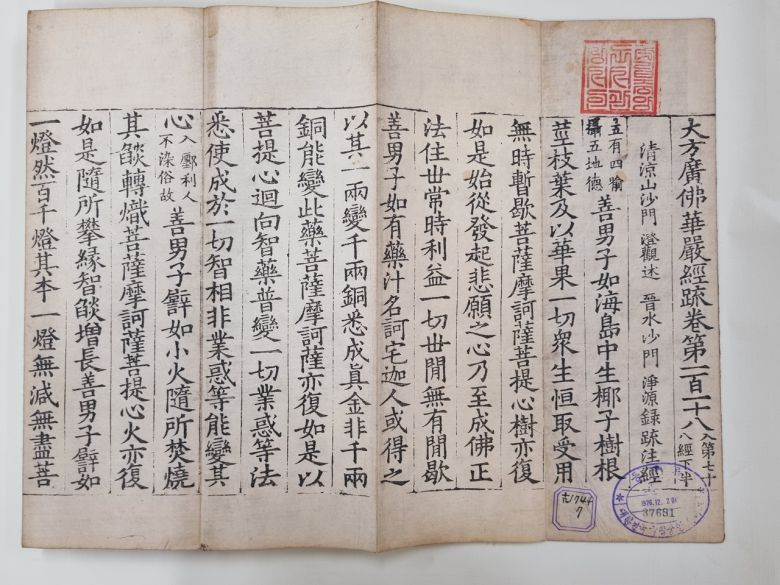 大方廣佛華嚴經䟽卷第一百一十八
入第七十
八經下半
清涼山沙門 澄觀述 晉水沙門 淨源録䟽注經
五有四喻
攝五地德
善男子如海島中生椰子樹根
莖枝葉及以華果一切衆生恒取受用
無時暫歇菩薩摩訶薩菩提心樹亦復
如是始從發起悲願之心乃至成佛正
法住世常時利益一切世間無有間歇
善男子如有藥汁名訶宅迦人或得之
以其一兩變千兩銅悉成眞金非千兩
銅能變此藥菩薩摩訶薩亦復如是以
菩提心迴向智藥普變一切業惑等法
悉使成於一切智相非業惑等能變其
心
入鄽利人
不染俗故
善男子譬如小火隨所焚燒
其燄轉熾菩薩摩訶薩菩提心火亦復
如是隨所攀緣智燄增長善男子譬如
一燈然百千燈其本一燈無減無盡菩
37681